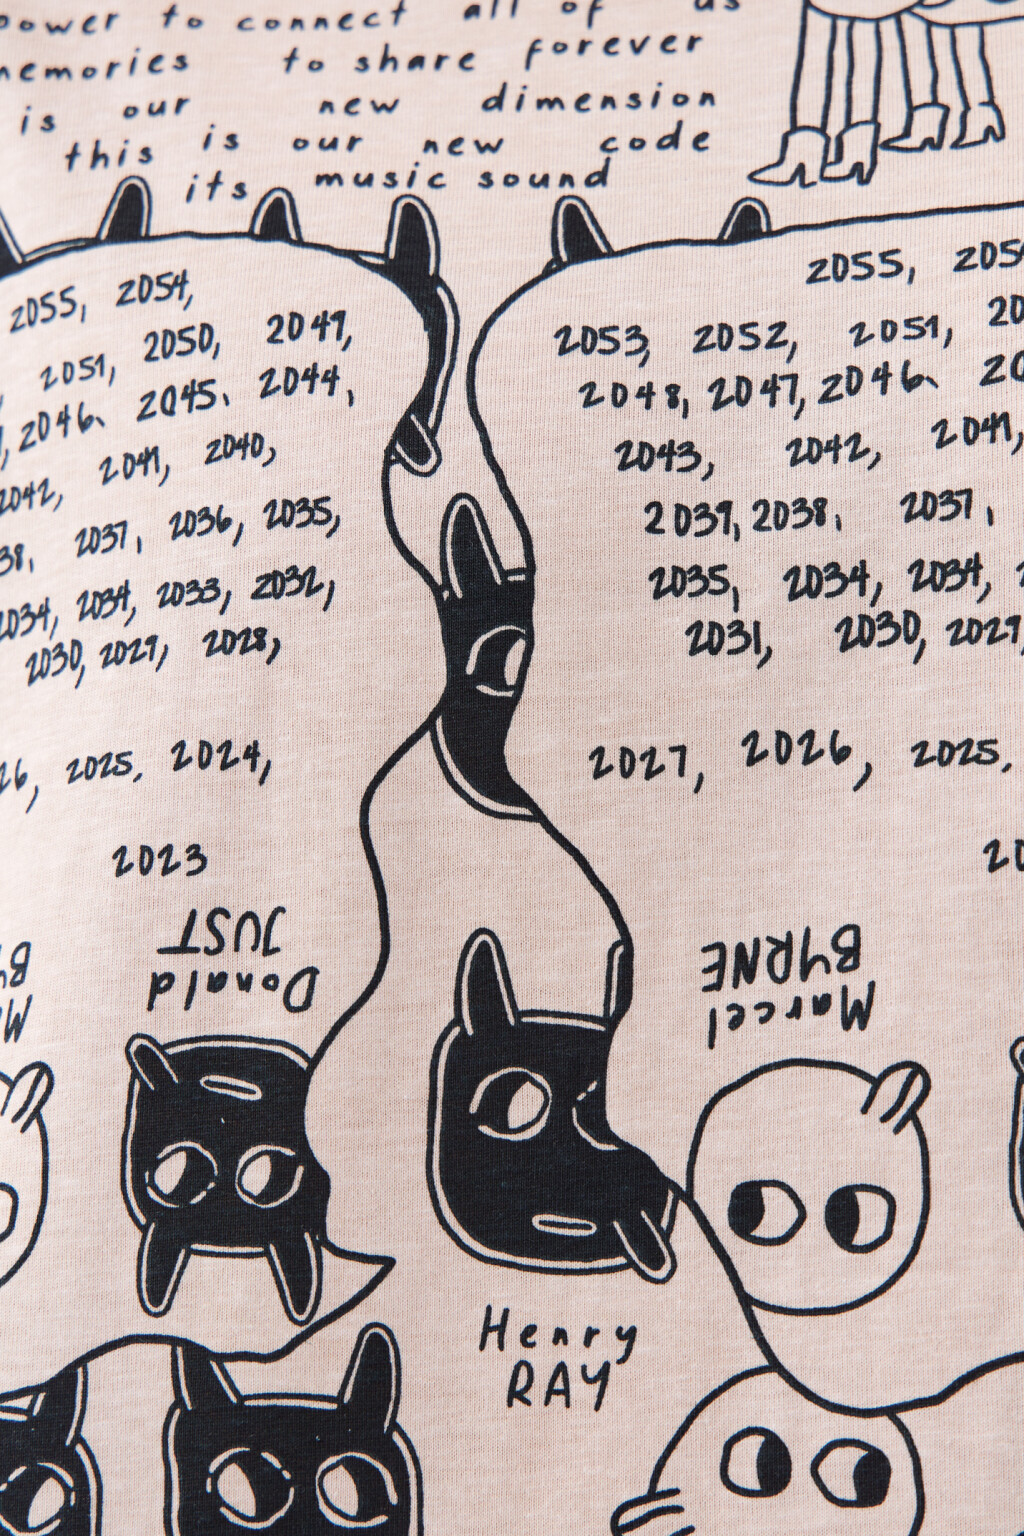 power to connect all of us
memories to share forever
is our new dimension
this is our new code
its music sound
2055, 2054,
2051, 2050, 2049,
2046, 2045, 2044,
2042, 2041, 2040,
38, 2037, 2036, 2035,
2034, 2034, 2033, 2032,
2030, 2029, 2028,
26, 2025, 2024,
2023
2055, 205
2053, 2052, 2051, 20
2048, 2047, 2046, 20
2043, 2042, 2041,
2039, 2038, 2037,
2035, 2034, 2034,
2031, 2030, 2029,
2027, 2026, 2025,
20
Donald
JUST
Marcel
BYRNE
Henry
RAY